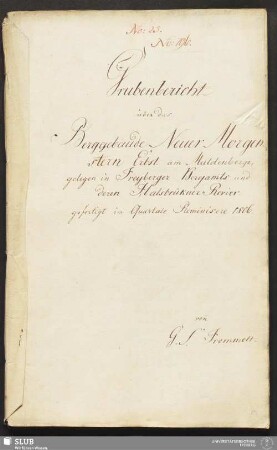 No: 33.
Grubenbericht
über das
Berggebäude Neuer Morgen
stern Erbst. am Muldenberge,
gelegen in Freyberger Bergamts und
deren Halsbrückner Revier
gefertigt im Quartale Reminiscere 1806
von
G. S. Frommelt.
SLUB
Wir führen Wissen.